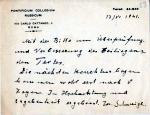 PONTIFICIUM COLLEGIUM
RUSSICUM
VIA CARLO CATTANEO, 2
ROMA
13/IV. 1941.
Mit der Bitte um Überprüfung
und Verbesserung des beiliegenden
Textes.
Die nächsten Korrekturbogen
kann man wohl erst nach
tagen. In Hochachtung und
Ergebenheit ergebenst